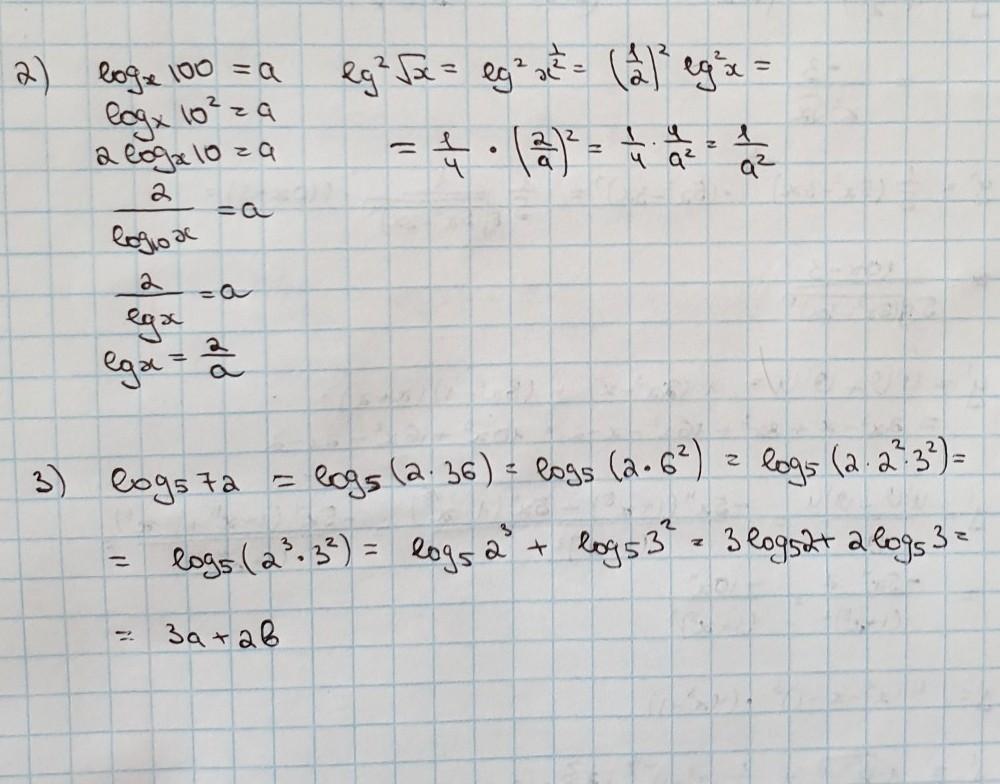 2) logₓ 100 = a
logₓ 10² = a
2 logₓ 10 = a
2/log₁₀ x = a
2/lg x = a
lg x = 2/a
lg² √x = lg² x^(1/2) = (1/2)² lg² x =
= 1/4 · (2/a)² = 1/4 · 4/a² = 1/a²
3) log₅ 72 = log₅ (2 · 36) = log₅ (2 · 6²) = log₅ (2 · 2² · 3²) =
= log₅ (2³ · 3²) = log₅ 2³ + log₅ 3² = 3 log₅ 2 + 2 log₅ 3 =
= 3a + 2b